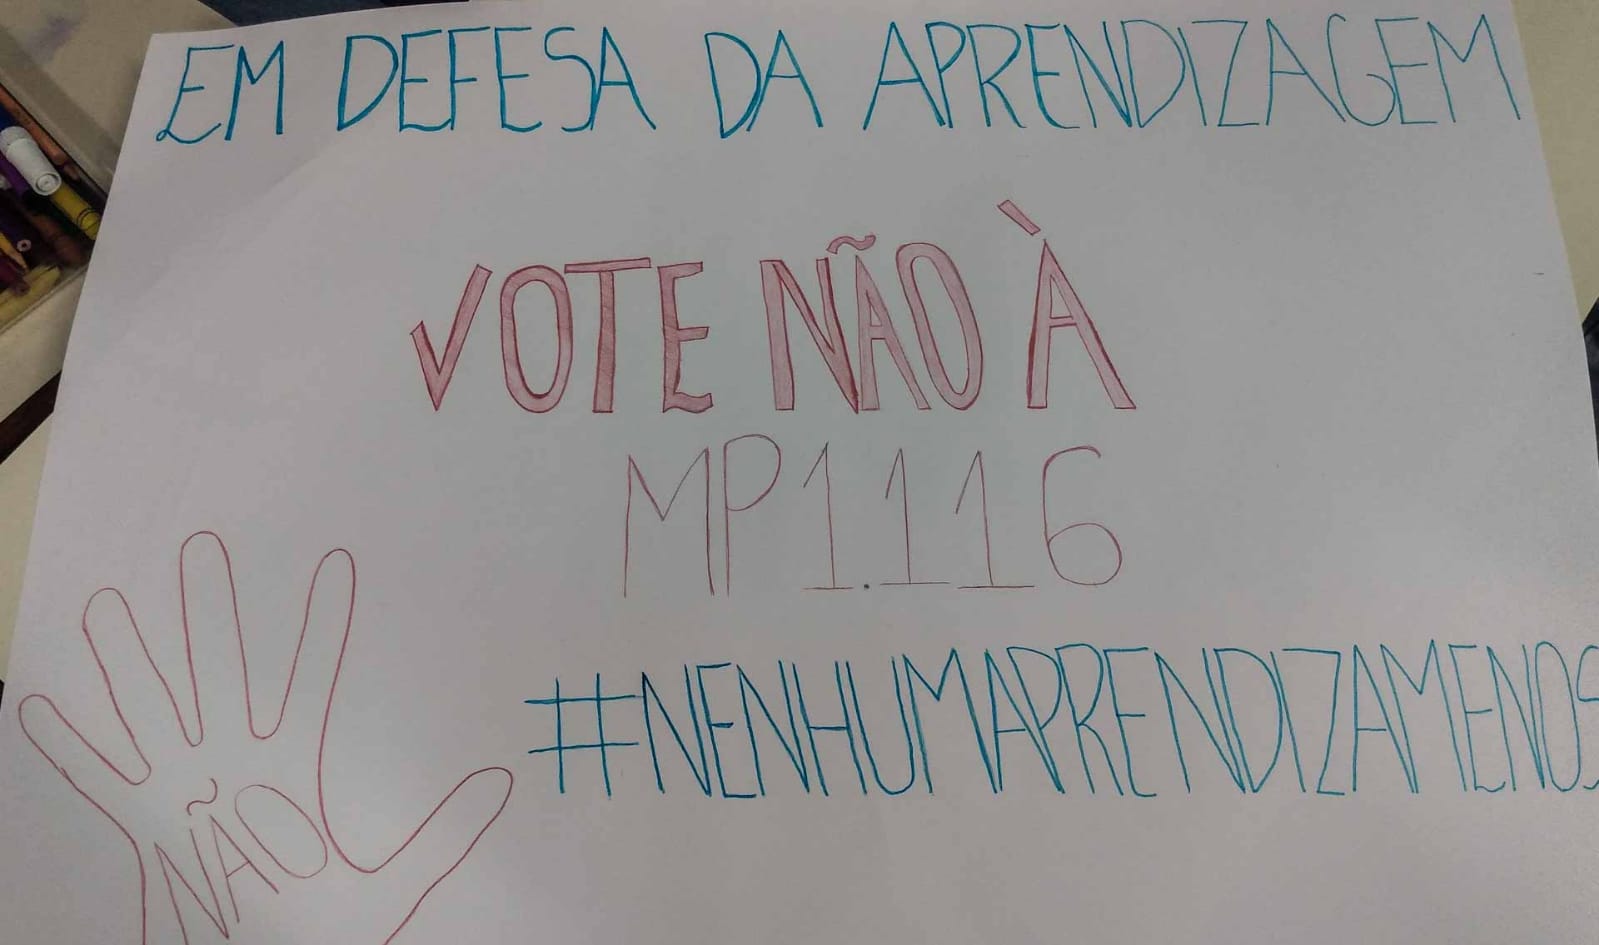 EM DEFESA DA APRENDIZAGEM
VOTE NÃO À
MP1.116
#NENHUMAPRENDIZAMENOS
NÃO